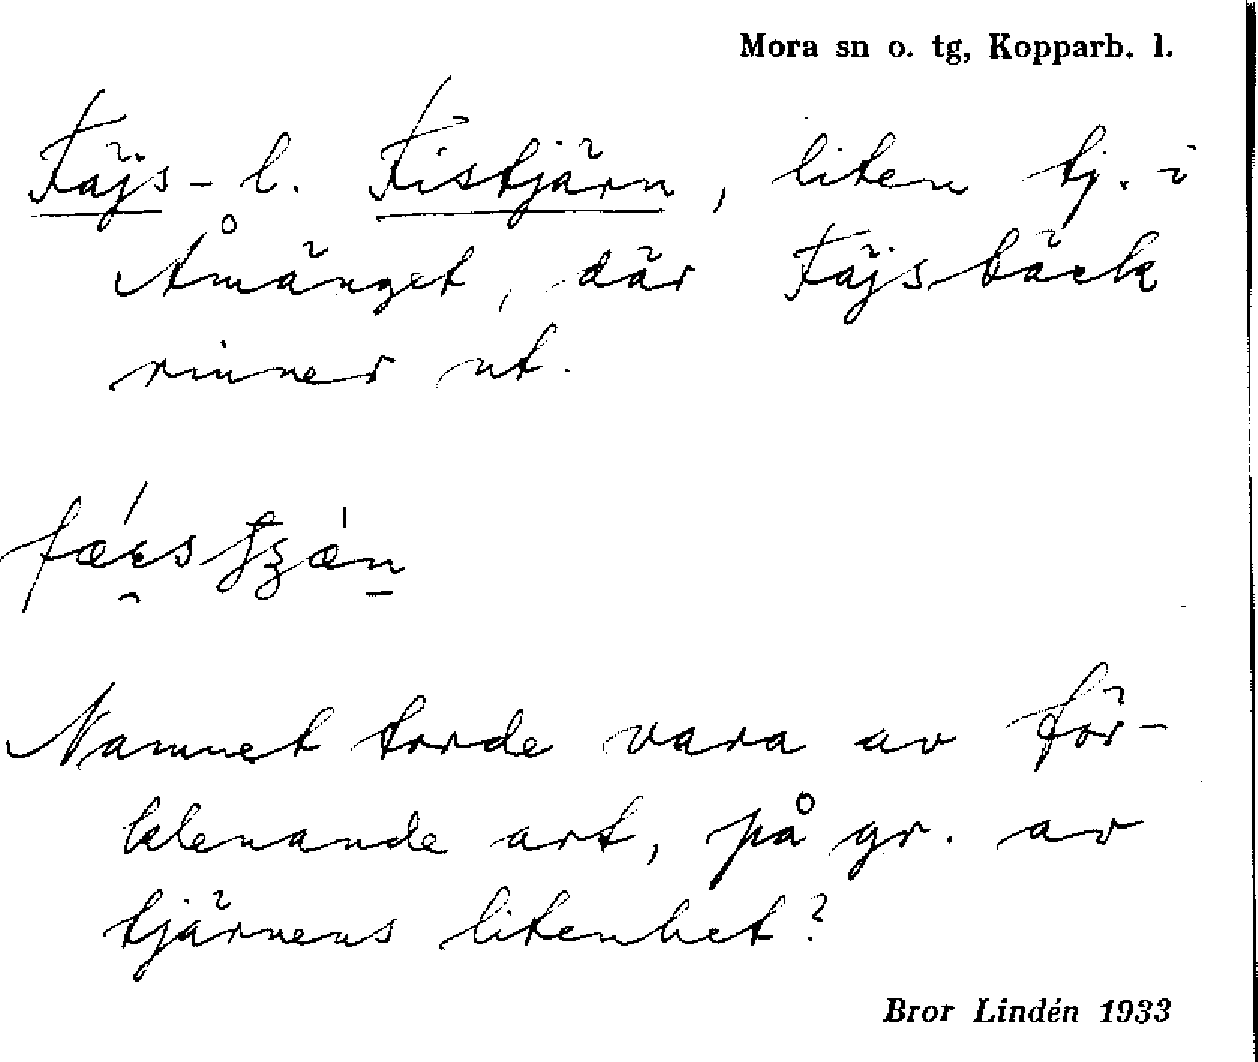 Mora sn o. tg, Kopparb. l.
Fäjs- l. Fistjärn, liten tj. i
Åmänget, där Fäjsbäck
rinner ut.
Namnet torde vara av för-
klenande art, på gr. av
tjärnens litenhet?
Bror Lindén 1933